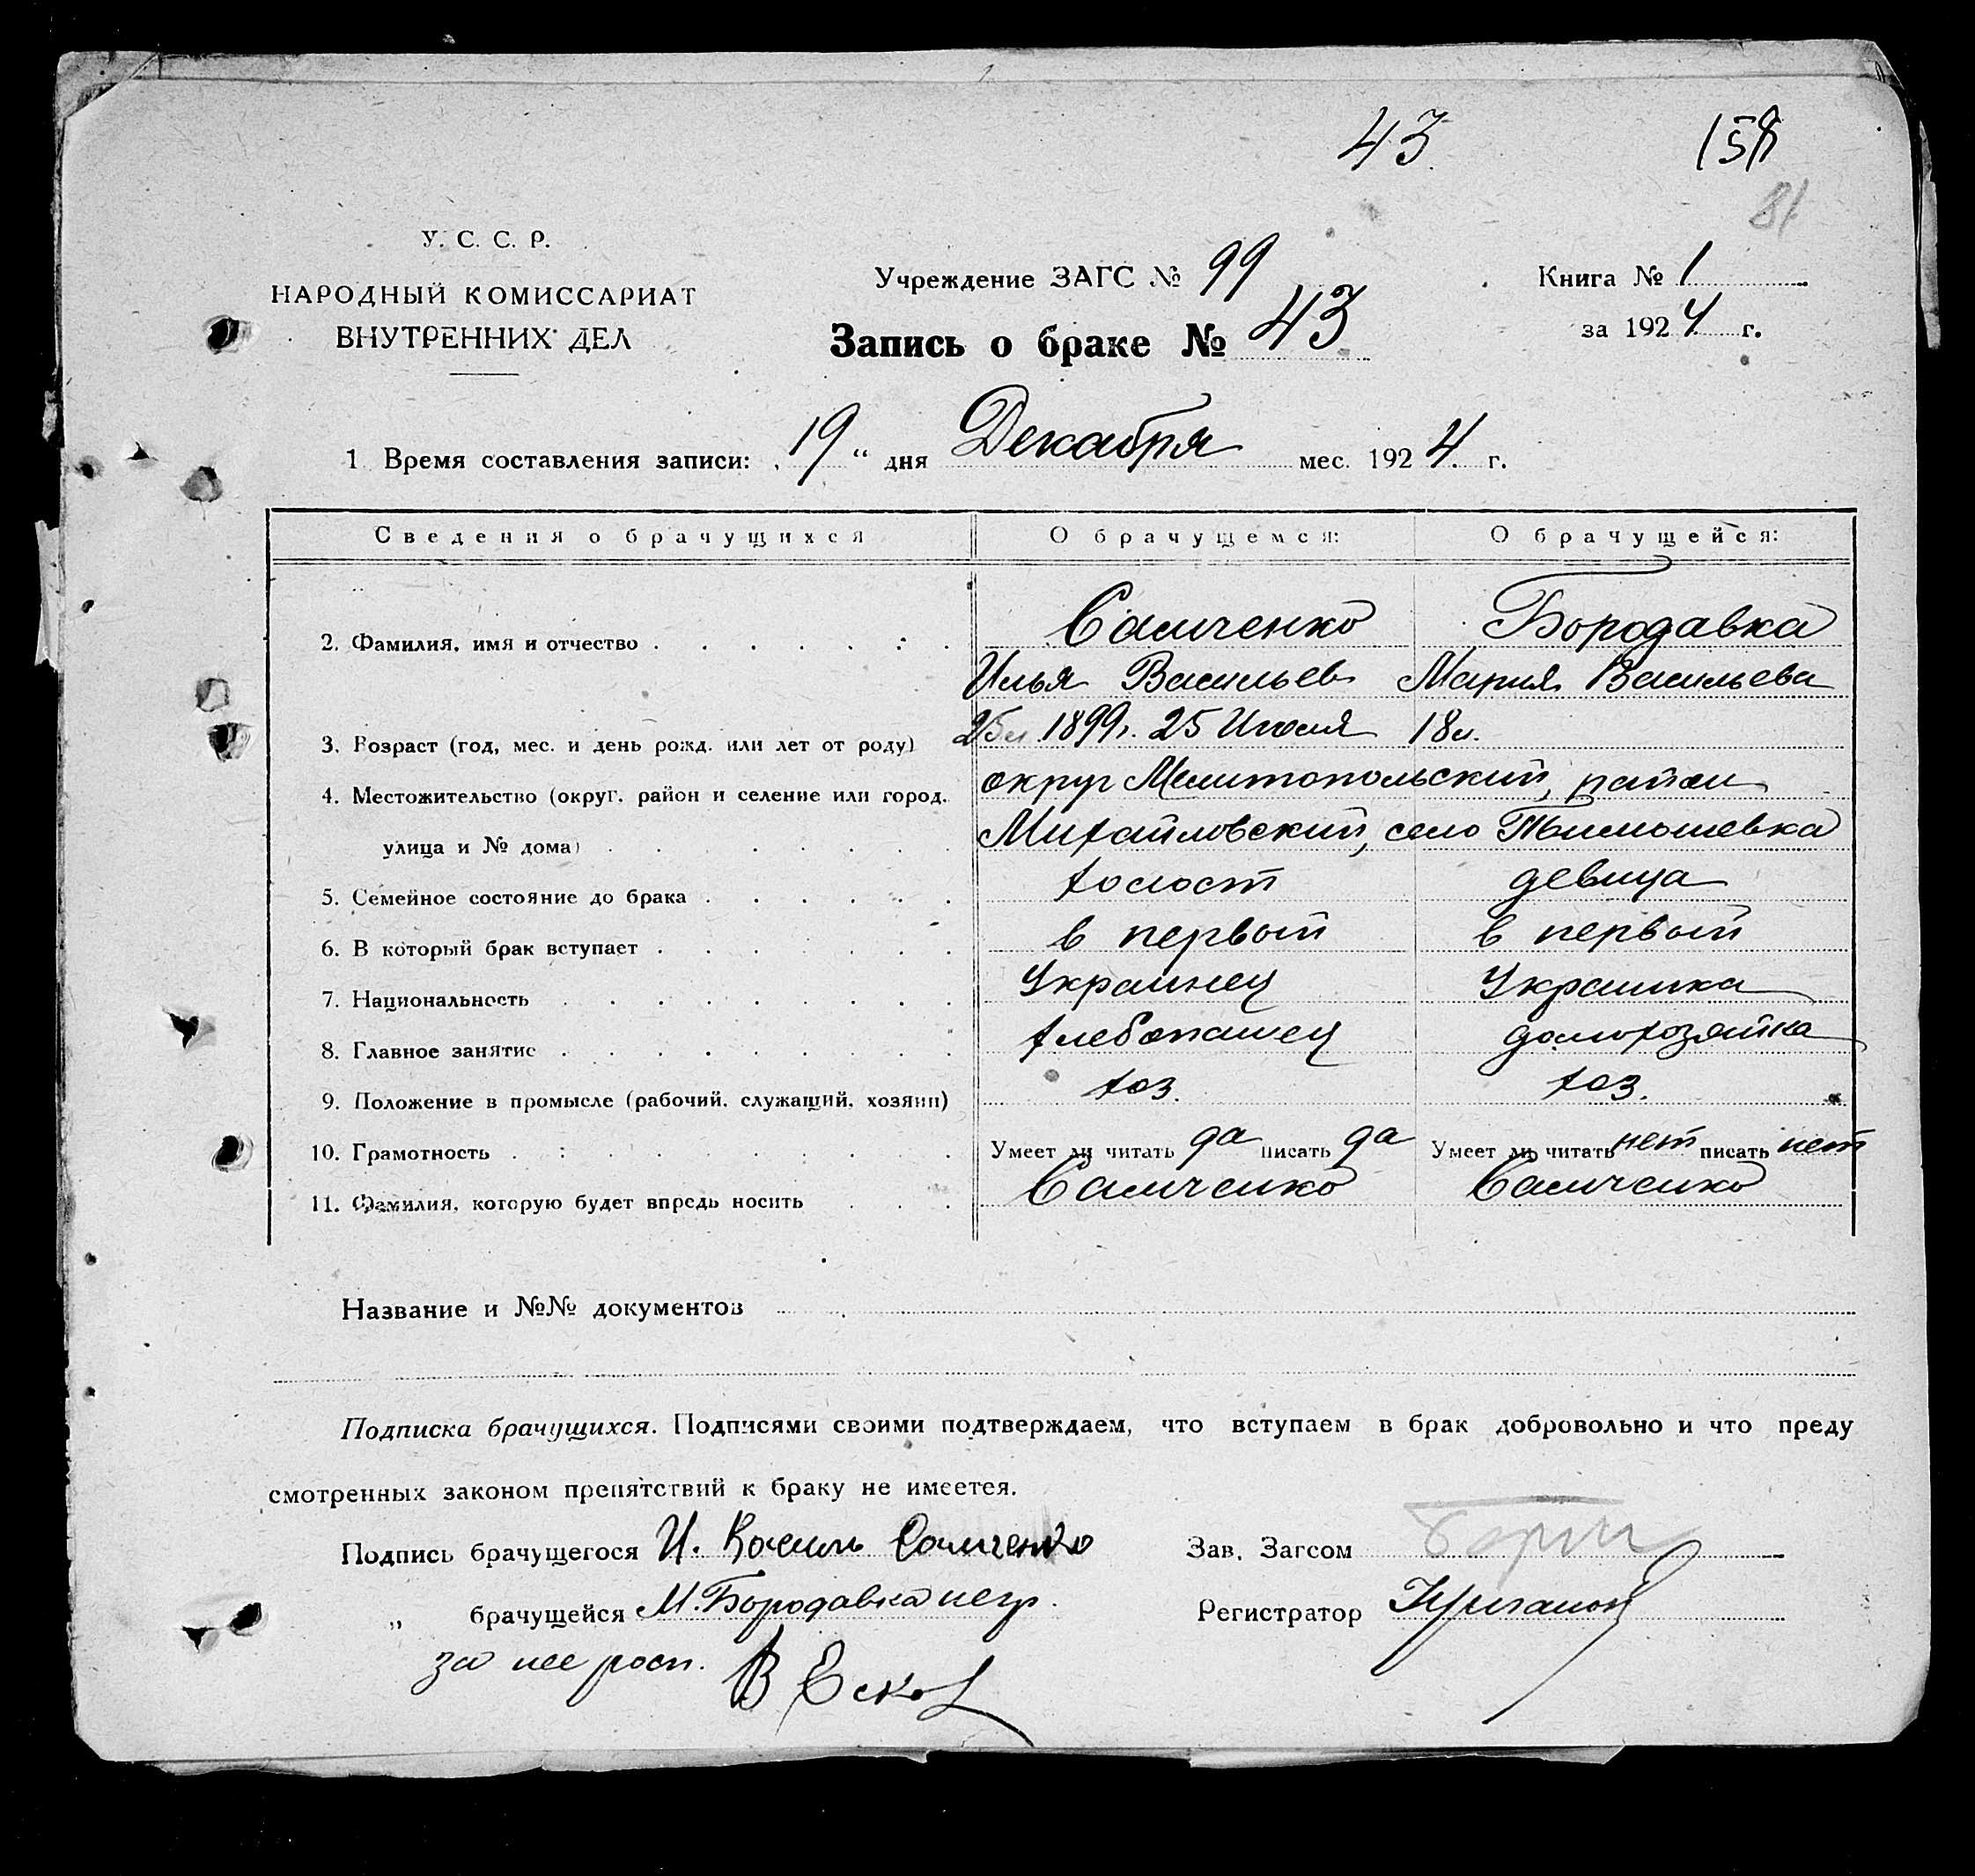 43. 158
81
У. С. С. Р.
НАРОДНЫЙ КОМИССАРИАТ
ВНУТРЕННИХ ДЕЛ
Учреждение ЗАГС № 99
Запись о браке № 43
Книга № 1
за 1924 г.
1 Время составления записи: 19 " дня Декабря мес. 1924. г.
Сведения о брачущихся О брачущемся: О брачущейся:
2. Фамилия, имя и отчество Самченко Бородавка
Илья Васильев Мария Васильева
3. Возраст (год, мес. и день рожд. или лет от роду) 25л. 1899г. 25 Июля 18л.
4. Местожительство (округ, район и селение или город, округ Мелитопольский, район
улица и № дома) Михайловский, село Тымошевка
5. Семейное состояние до брака холост девица
6. В который брак вступает в первый в первый
7. Национальность Украинец Украинка
8. Главное занятие хлебопашец домохозяйка
9. Положение в промысле (рабочий, служащий, хозяин) хоз. хоз.
10. Грамотность Умеет ли читать да писать да Умеет ли читать нет писать нет
11. Фамилия, которую будет впредь носить Самченко Самченко
Название и №№ документов
Подписка брачущихся. Подписями своими подтверждаем, что вступаем в брак добровольно и что преду
смотренных законом препятствий к браку не имеется.
Подпись брачущегося И. Самченко Зав. Загсом
„ брачущейся М. Бородавка негр. Регистратор
за нее росп. В Еско